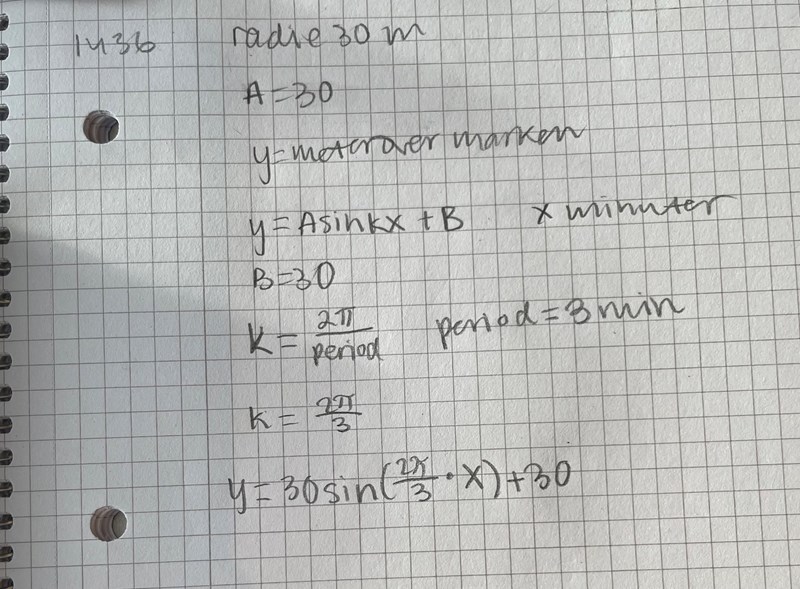 1436 radie 30 m
A=30
y=meter över marken
y=Asinkx+B x minuter
B=30
k=2π/period period=3min
k=2π/3
y=30sin(2π/3·x)+30